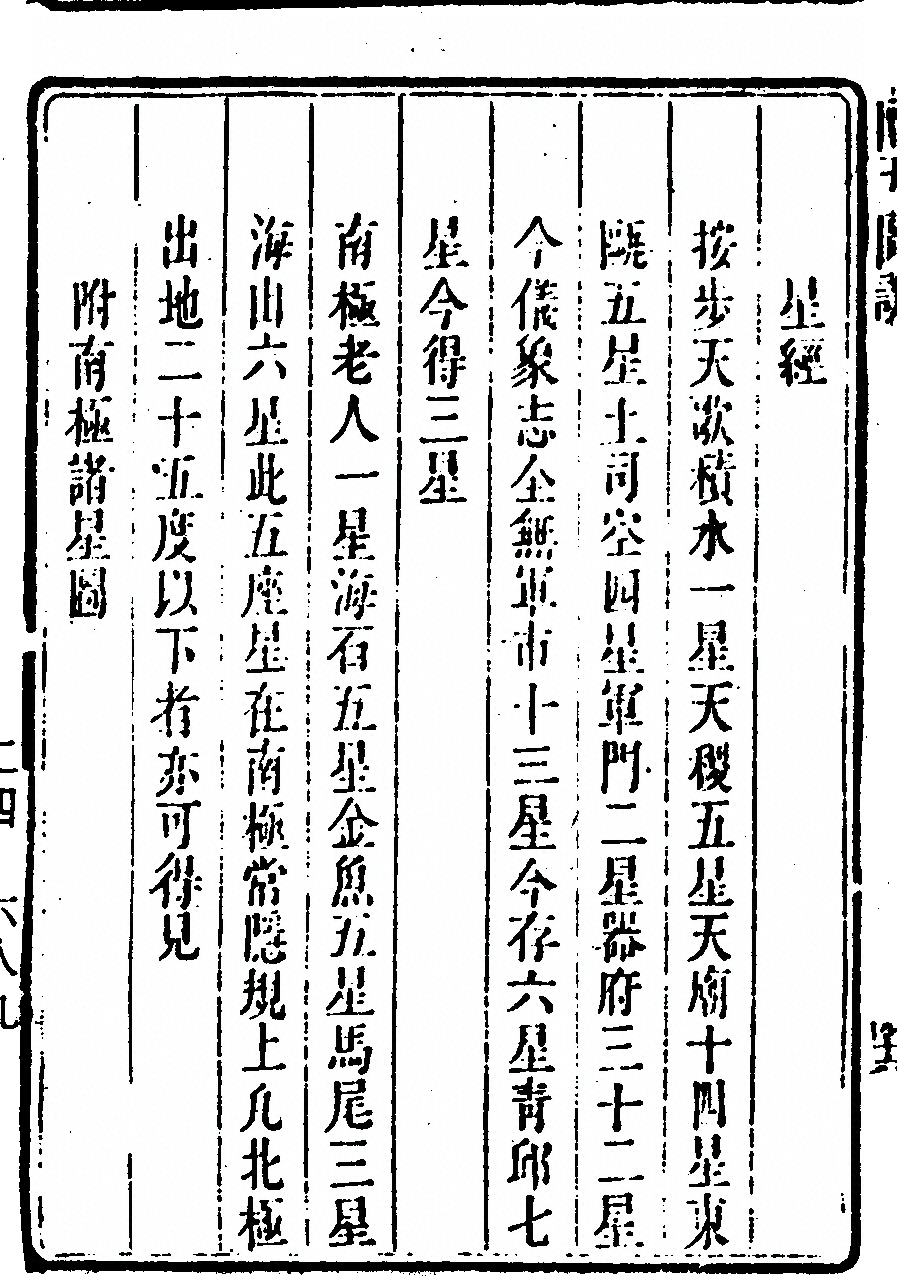 星經
按步天歌積水一星天稷五星天廟十四星東
甌五星土司空四星軍門二星器府三十二星
今儀象志全無軍市十三星今存六星青邱七
星今得三星
南極老人一星海石五星金魚五星馬尾三星
海山六星此五座星在南極常隱規上凡北極
出地二十五度以下者亦可得見
附南極諸星圖
二四 六八九